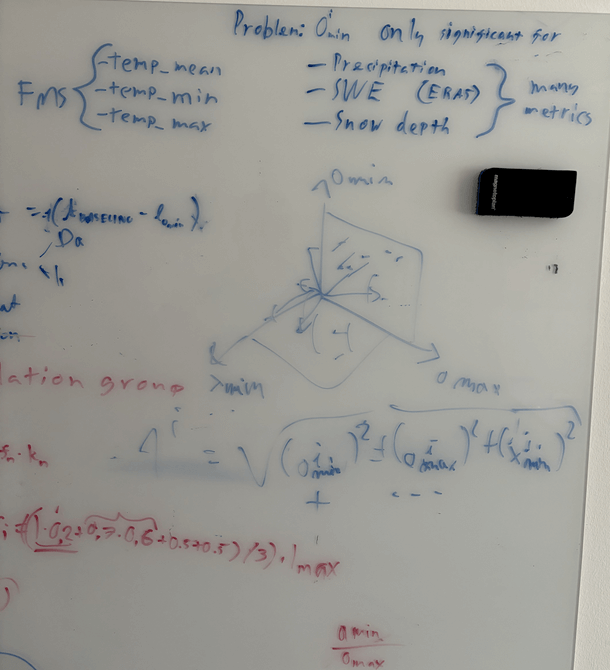 Problem: O'min only significant for
FMS { -temp_mean
-temp_min
-temp_max
- Precipitation
- SWE (ERA5)
- Snow depth
} many metrics
0 min
= f(A BASELINE - l min).
Da
at
λmin
0 max
lation group
Λ^i = √((o^i min)^2 + (o^i max)^2 + (x^i min)^2
+ ---
fn·kn
i = ((1·0,2+0,7·0,6+0.5*0.5)/3)·lmax
a min
o max